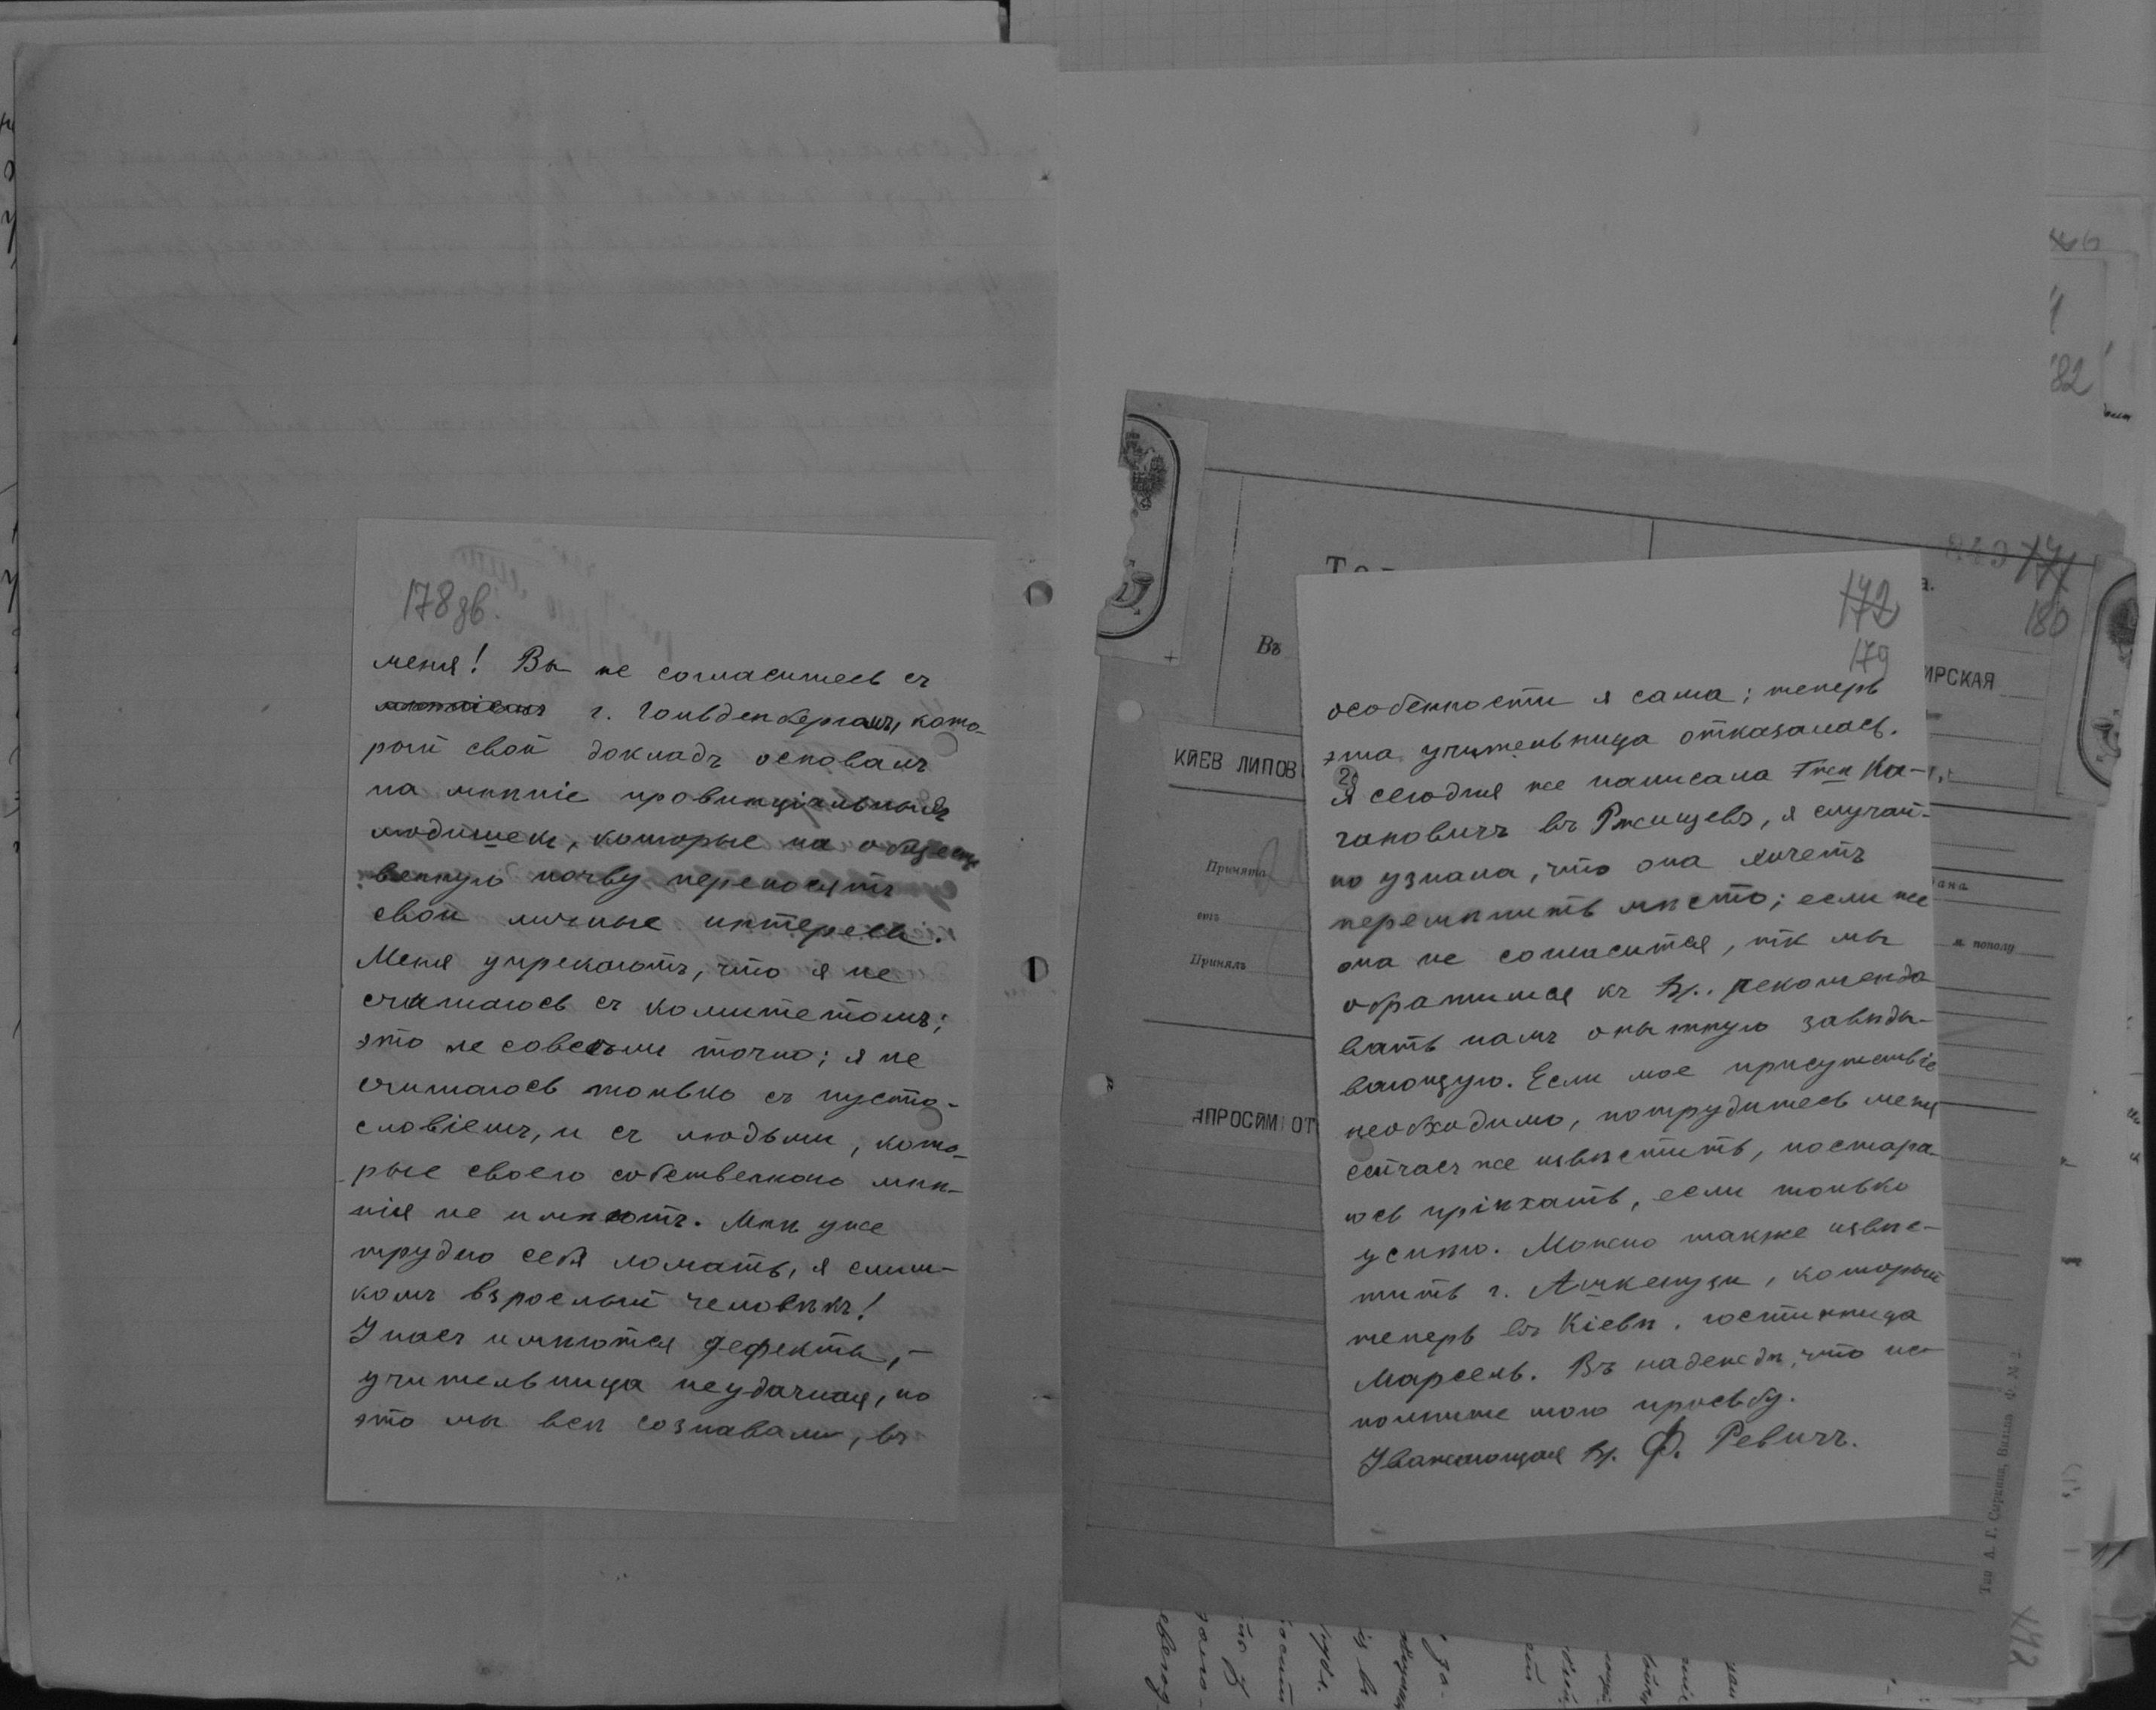 178 зв.
меня! Вы не согласитесь съ
г. Гольденбергомъ, кото-
рый свой докладъ основалъ
на мнѣніе провинціальныхъ
людишекъ, которые на общест
венную почву переносятъ
свои личные интересы.
Меня упрекаютъ, что я не
считаюсь съ комитетомъ;
это не совсѣмъ точно; я не
считаюсь только съ пусто-
словіемъ, и съ людьми, кото-
рые своего собственного мнѣ-
нія не имѣютъ. Мнѣ уже
трудно себя ломать, я слиш-
комъ взрослый человѣкъ!
У насъ имѣются дефекты,-
учительница неудачная, но
это мы всѣ сознавали, въ
172
179
особенности я сама; теперь
эта учительница отказалась.
Я сегодня же написала Г-жѣ Ка-
гановичъ въ Ржищевъ, я случай-
но узнала, что она хочетъ
перемѣнить мѣсто; если же
она не согласится, тк мы
обратимся къ Вр. рекомендо
вать намъ опытную завѣды-
вающую. Если мое присутствіе
необходимо, потрудитесь меня
сейчасъ же извѣстить, постара-
юсь пріѣхать, если только
успѣю. Можно также извѣс-
тить г. Ашкенузи, который
теперь въ Кіевѣ, гостинница
Марсель. Въ надеждѣ, что ис
полните мою просьбу.
Уважающая Вр. Ф. Ревичъ.
171
180
Въ
ИРСКАЯ
КИЕВ ЛИПОВ
Принята
Принялъ
п. пололу
АПРОСИМ ОТ
Тип А. Г. Сыркина, Вильна Ф. № 2.
82